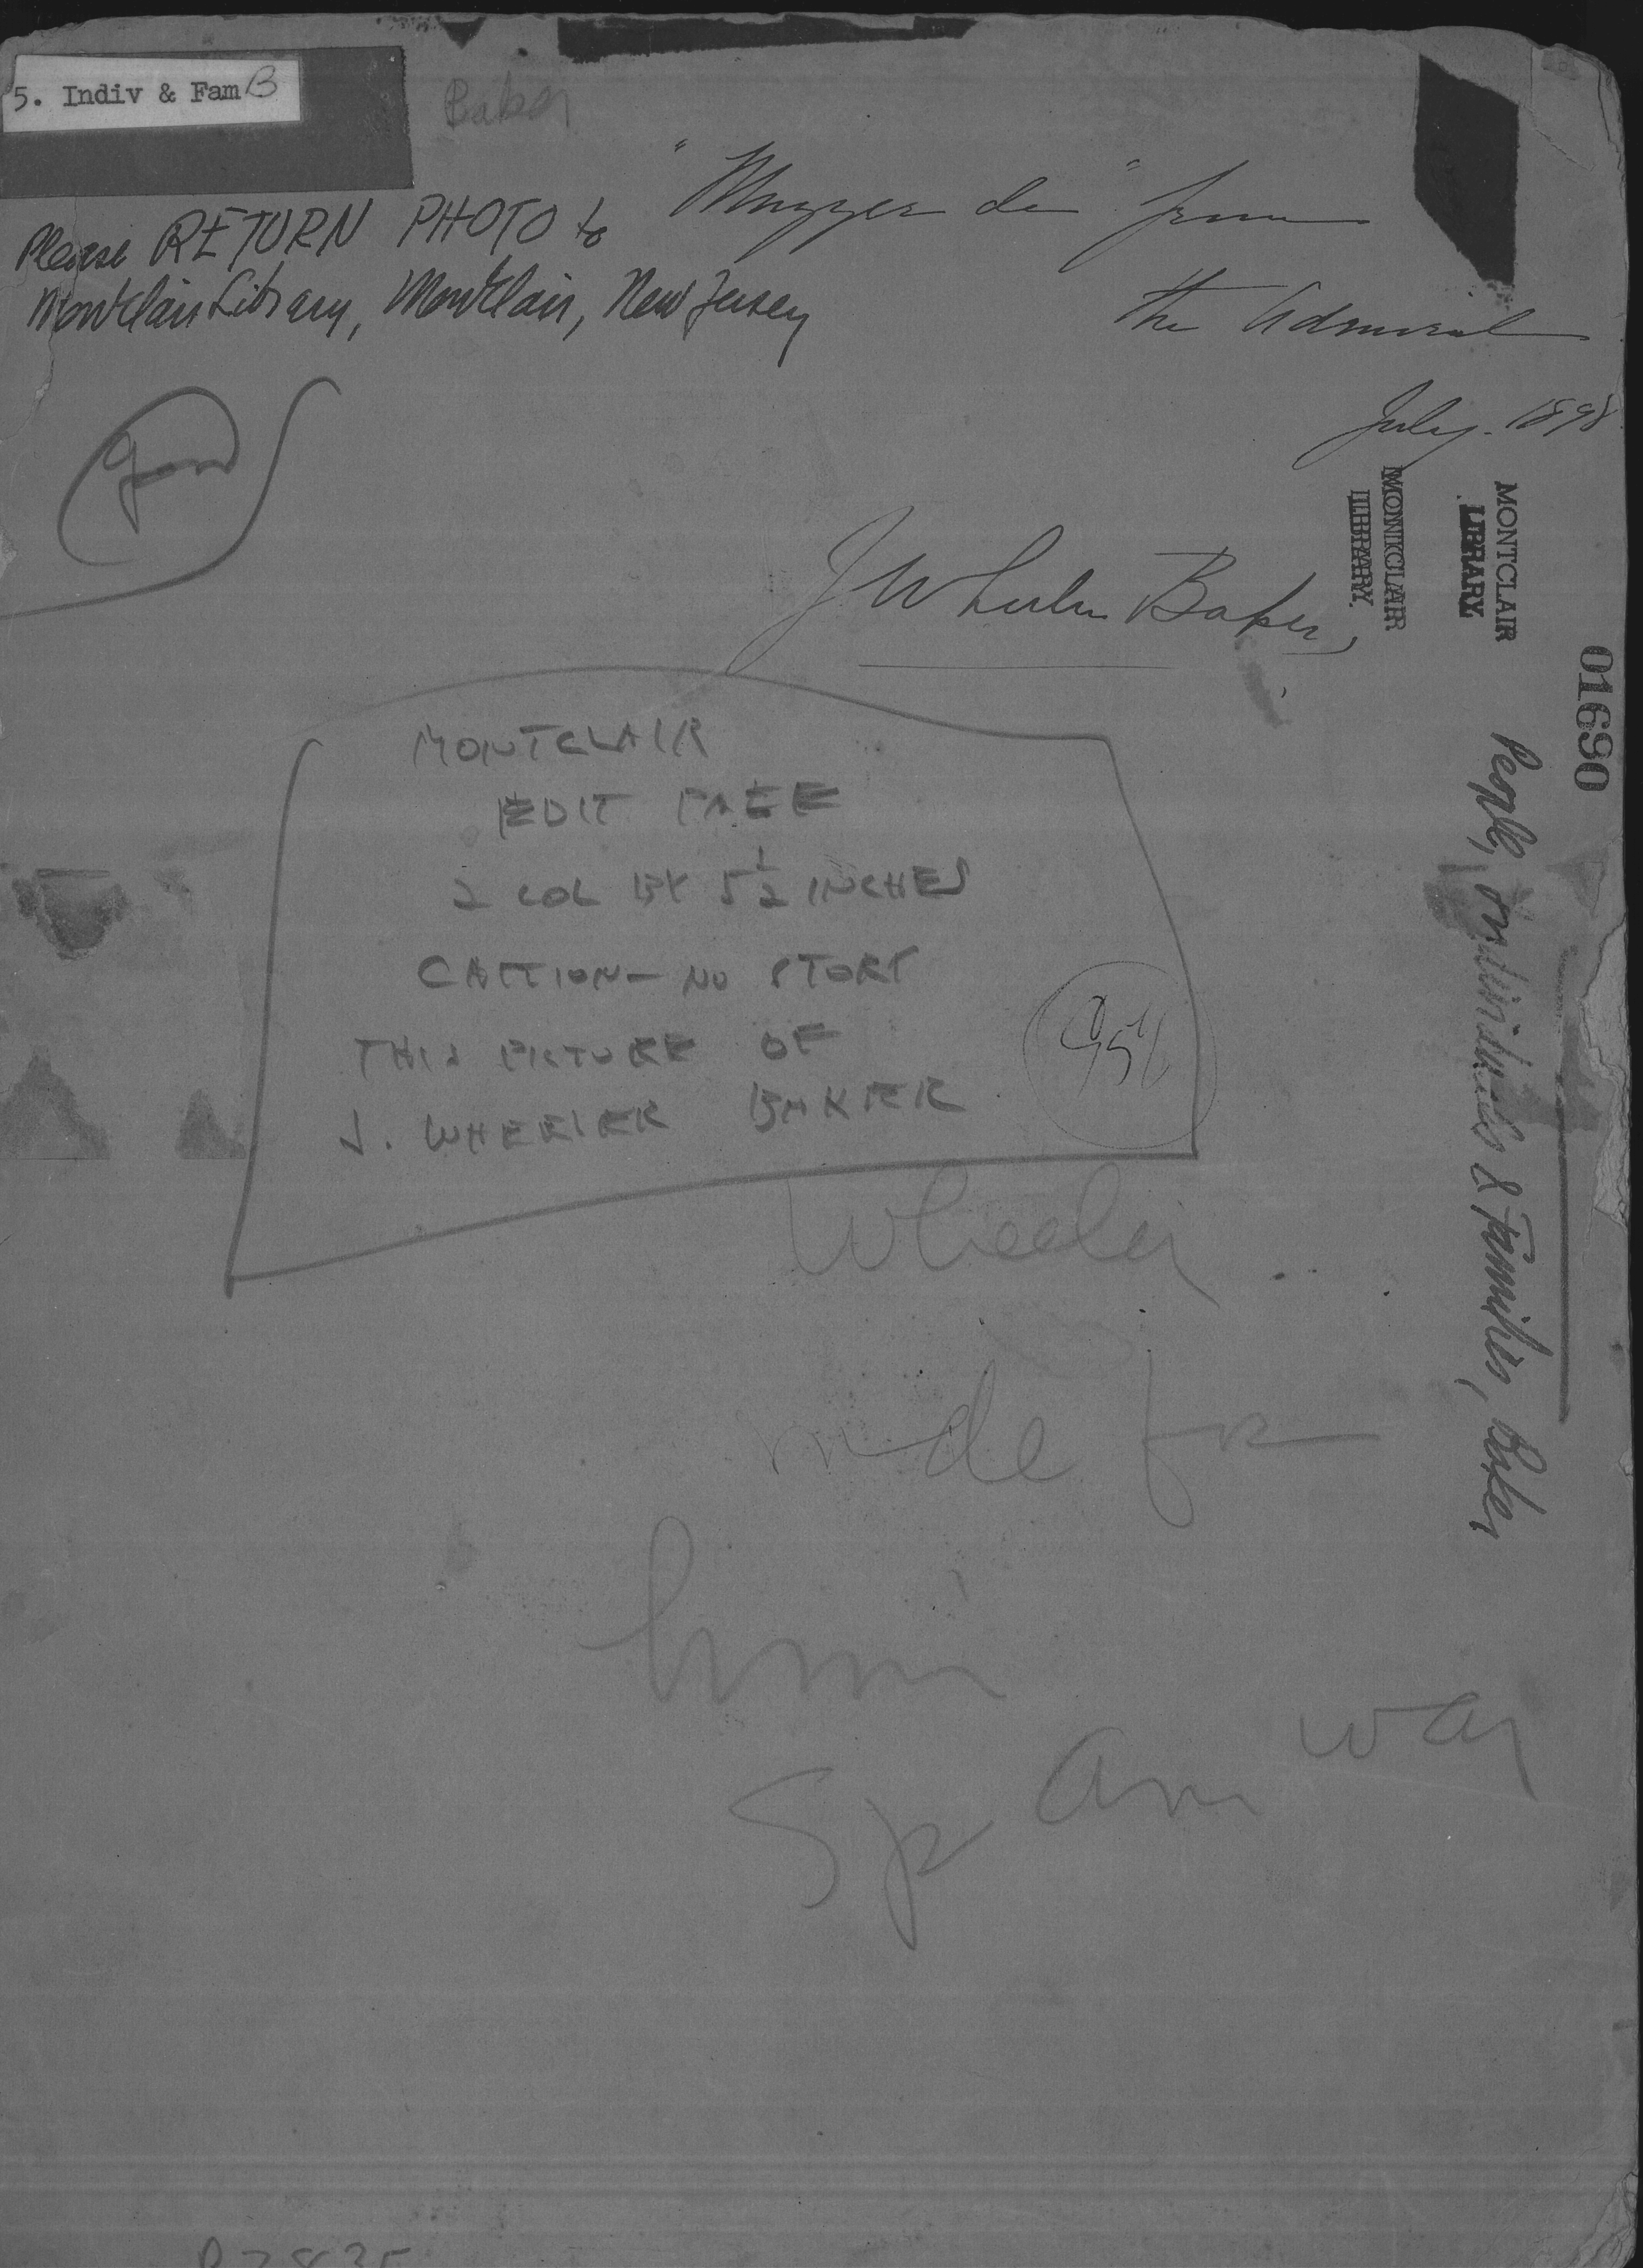 5. Indiv & Fam B
Baker
Please RETURN PHOTO to
Montclair Library, Montclair, New Jersey
" de " from
the Admiral
July. 1898
J Wheeler Baker,
MONTCLAIR
LIBRARY
MONTCLAIR
LIBRARY
01690
People, individuals & Families, Baker
MONTCLAIR
EDIT PAGE
2 COL BY 5 1/2 INCHES
CAPTION - NO STORY
THIS PICTURE OF
J. WHEELER BAKER
Wheeler
in
Sp Am War